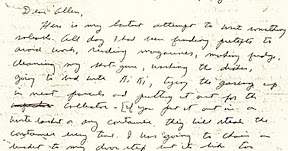 Dear Allen,
Here is my latest attempt to write something
All day I had been finding pretexts to
avoid work, reading magazines, making fudge,
cleaning my shot gun, washing the dishes,
going to bed with Ki Ki, tying the garbage up
in neat parcels and putting it out for the
collector - [if you put it out in a
waste basket or any container they will steal the
container every time. I was going to chain a
bucket to my doorstep but it